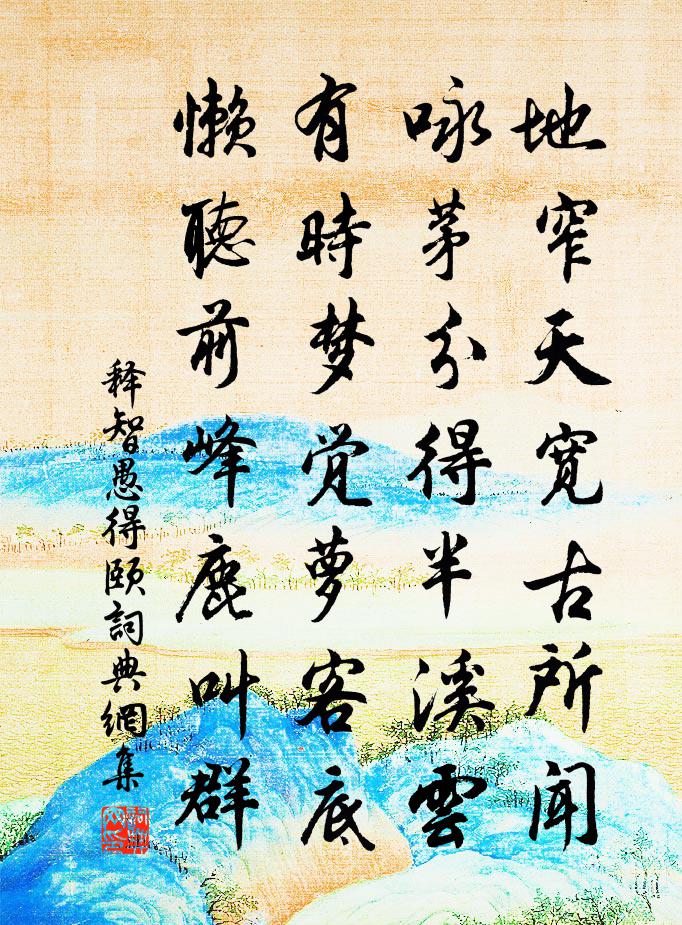 地窄天宽古所闻
咏茅分得半溪雲
有時梦觉萝客底
懒聽前峰鹿叫群
释智愚得頤詞典網集